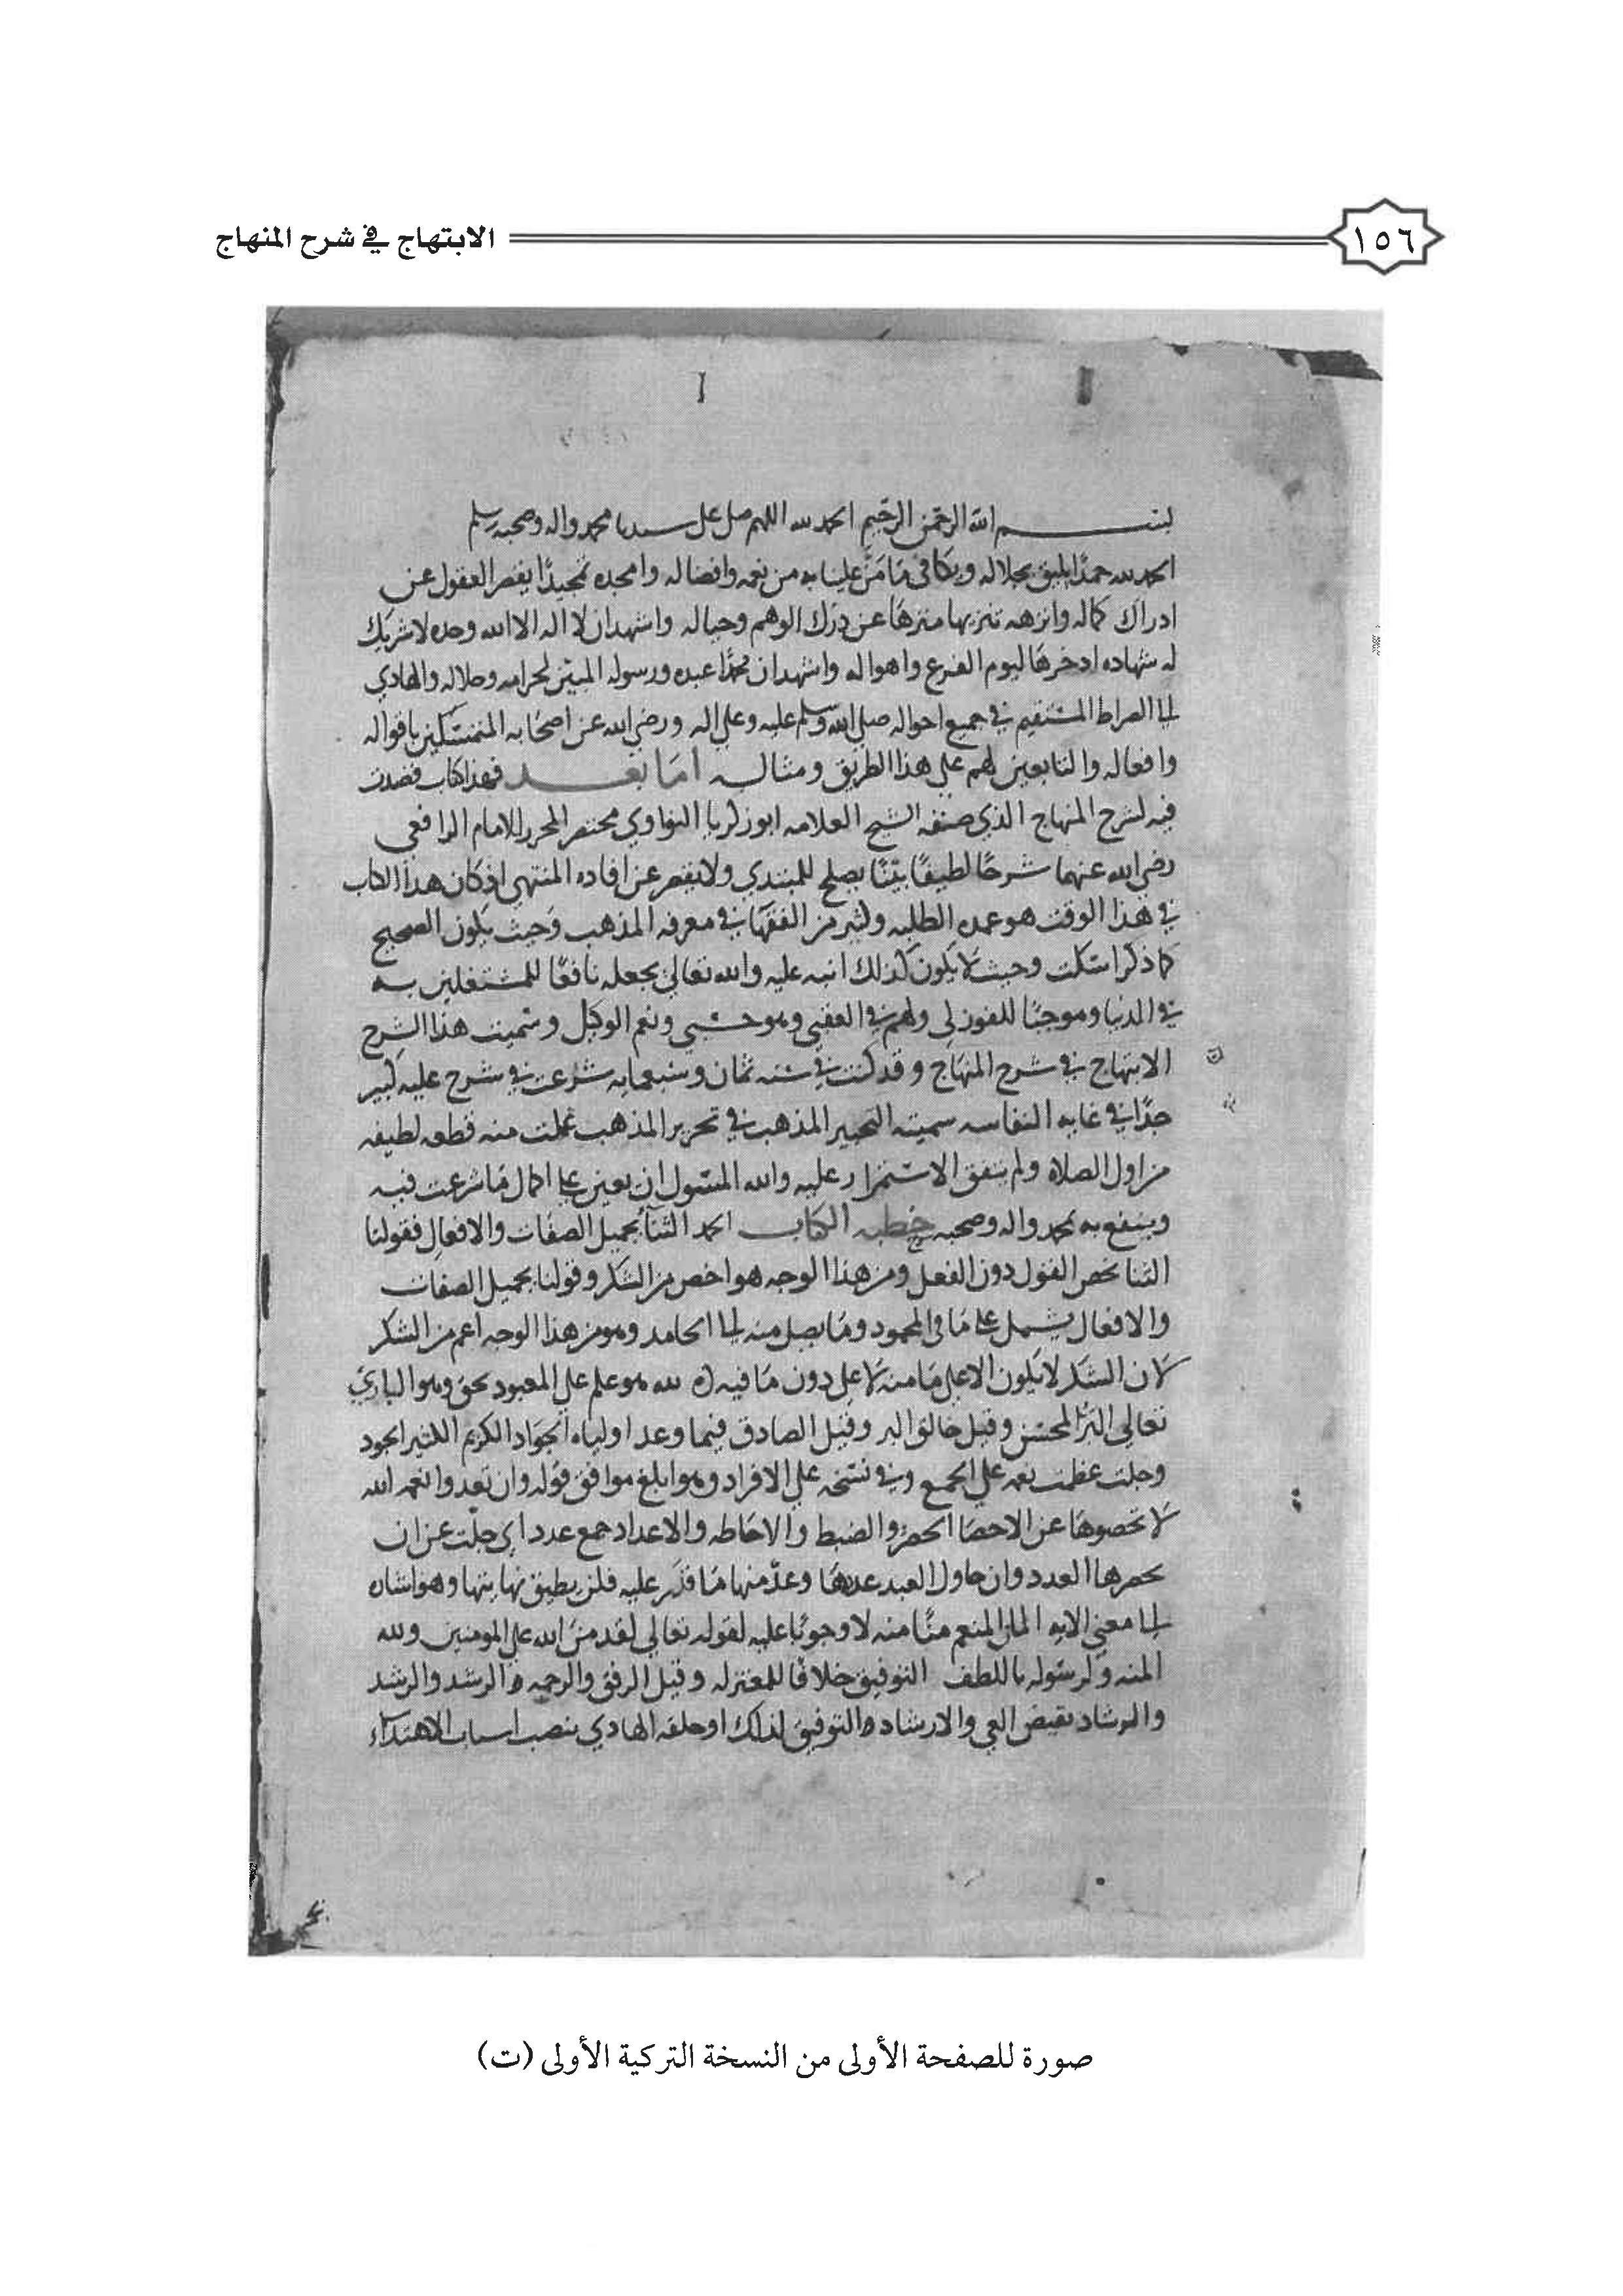 ١٥٦
الابتهاج في شرح المنهاج
بسم الله الرحمن الرحيم الحمد لله اللهم صل على سيدنا محمد واله وصحبه وسلم
الحمد لله حمدا يليق بجلاله ويكافى ما من علينا به من نعمه وافضاله وامجده تمجيدا يقصر العقول عن
ادراك كماله وانزهه تنزيها منزها عن درك الوهم وخياله واشهد ان لا اله الا الله وحده لا شريك
له شهاده ادخرها ليوم الفزع واهواله واشهد ان محمدا عبده ورسوله المبين لحرامه وحلاله والهادي
الى الصراط المستقيم في جميع احواله صلى الله وسلم عليه وعلى اله ورضي الله عن اصحابه المتمسكين باقواله
وافعاله والتابعين لهم على هذا الطريق ومثاله اما بعد فهذا كتاب قصدت
فيه لشرح المنهاج الذي صنفه الشيخ العلامه ابو زكريا النواوي مختصر المحرر للامام الرافعي
رضي الله عنهما شرحا لطيفا بينا يصلح للمبتدي ولا يقصر عن افاده المنتهي اذ كان هذا الكتاب
في هذا الوقت هو عمده الطلبه وكثير من الفقها في معرفه المذهب وحيث يكون الصحيح
كما ذكر اسكت وحيث لا يكون كذلك انبه عليه والله تعالى يجعله نافعا للمشتغلين به
في الدنيا وموجبا للفوز لي ولهم في العقبى وهو حسبي ونعم الوكيل وسميت هذا الشرح
الابتهاج في شرح المنهاج وقد كنت في سنه ثمان وسبعمايه شرعت في شرح عليه كبير
جدا في غايه النفاسه سميته التحبير المذهب في تحرير المذهب عملت منه قطعه لطيفه
من اول الصلاه ولم يتفق الاستمرار عليه والله المسئول ان يعين على اكمال ما شرعت فيه
وينفع به بمحمد واله وصحبه خطبه الكتاب الحمد الثنا بجميل الصفات والافعال فقولنا
الثنا يخص القول دون الفعل ومن هذا الوجه هو اخص من الشكر وقولنا بجميل الصفات
والافعال يشمل على ما في المحمود وما يصل منه الى الحامد وهو من هذا الوجه اعم من الشكر
لان الشكر لا يكون الا على ما منه لا على دون ما فيه لله هو علم على المعبود بحق وهو الباري
تعالى البر المحسن وقيل خالق البر وقيل الصادق فيما وعد اولياه الجواد الكريم الكثير الجود
وجلت عظمت نعمه على الجمع وفي نسخه على الافراد وهو ابلغ موافق قوله وان تعدوا نعمه الله
لا تحصوها عن الاحصا الحصر والضبط والاحاطه والاعداد جمع عدد اي جلت عن ان
يحصرها العدد وان حاول العبد عدها وعد منها ما قدر عليه فلن يطيق نهايتها وهو اشاره
الى معنى الايه المان المنعم منا منه لا وجوبا عليه لقوله تعالى لقد من الله على المومنين ولله
المنه ولرسوله باللطف التوفيق خلافا للمعتزله وقيل الرفق والرحمه والرشد والرشد
والرشاد نقيض الغي والارشاد والتوفيق لذلك او خلقه الهادي بنصب اسباب الاهتداء
صورة للصفحة الأولى من النسخة التركية الأولى (ت)